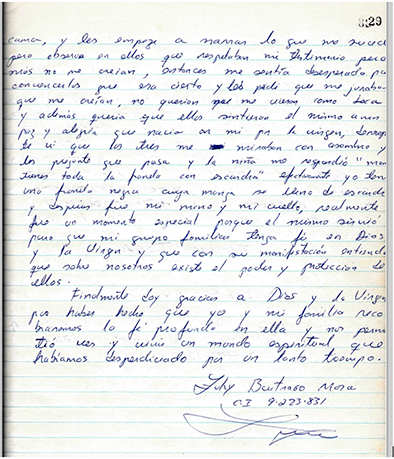 29
cama, y les empeze a narrar lo que me sucedio
pero observe en ellos que respetaban mi testimonio pero
mas no me creian, entonces me sentia desesperada por
convencerlos que era cierto y les pedi que me juraban
que me creian, no querian que me vieran como loca
y además queria que ellos sintieron el mismo amor
paz y alegria que nacia en mi por la virgen, derrepen
te vi que los tres me miraban con asombro y
les pregunte que pasa y la niña me respondió "mami
tienes toda la franela con escarcha" efectivamente yo tenia
una franela negra cuya manga se lleno de escarcha
y despues fue mi mano y mi cuello, realmente
fue un momento especial porque el mismo sirvió
para que mi grupo familiar tenga fé en Dios
y la Virgen y que con su manifestación entiendan
que sobre nosotros existe el poder y proteccion de
ellos.
Finalmente doy gracias a Dios y la Virgen
por haber hecho que yo y mi familia reco
braramos la fé profunda en ella y nos permi
tió ver y vivir un mundo espiritual que
habiamos desperdiciado por un tanto tiempo.
Buitrago Mora
C.I 9.223.831